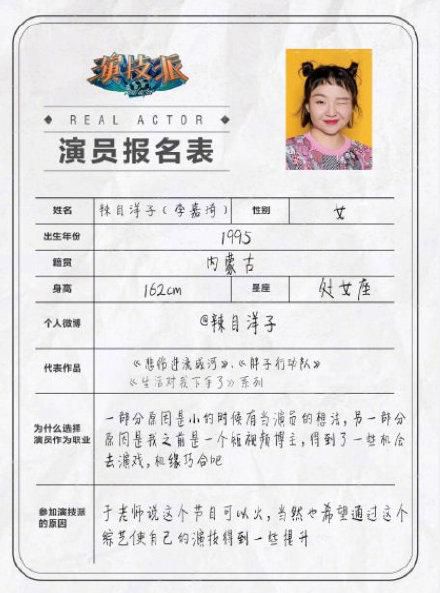 演技派
REAL ACTOR
演员报名表
姓名 辣目洋子（李嘉琦） 性别 女
出生年份 1995
籍贯 内蒙古
身高 162cm 星座 处女座
个人微博 @辣目洋子
代表作品 《悲伤逆流成河》、《胖子行动队》
《生活对我下手了》系列
为什么选择
演员作为职业
一部分原因是小的时候有当演员的想法，另一部分
原因是我之前是一个短视频博主，得到了一些机会
去演戏，机缘巧合吧
参加演技派
的原因
于老师说这个节目可以火，当然也希望通过这个
综艺使自己的演技得到一些提升